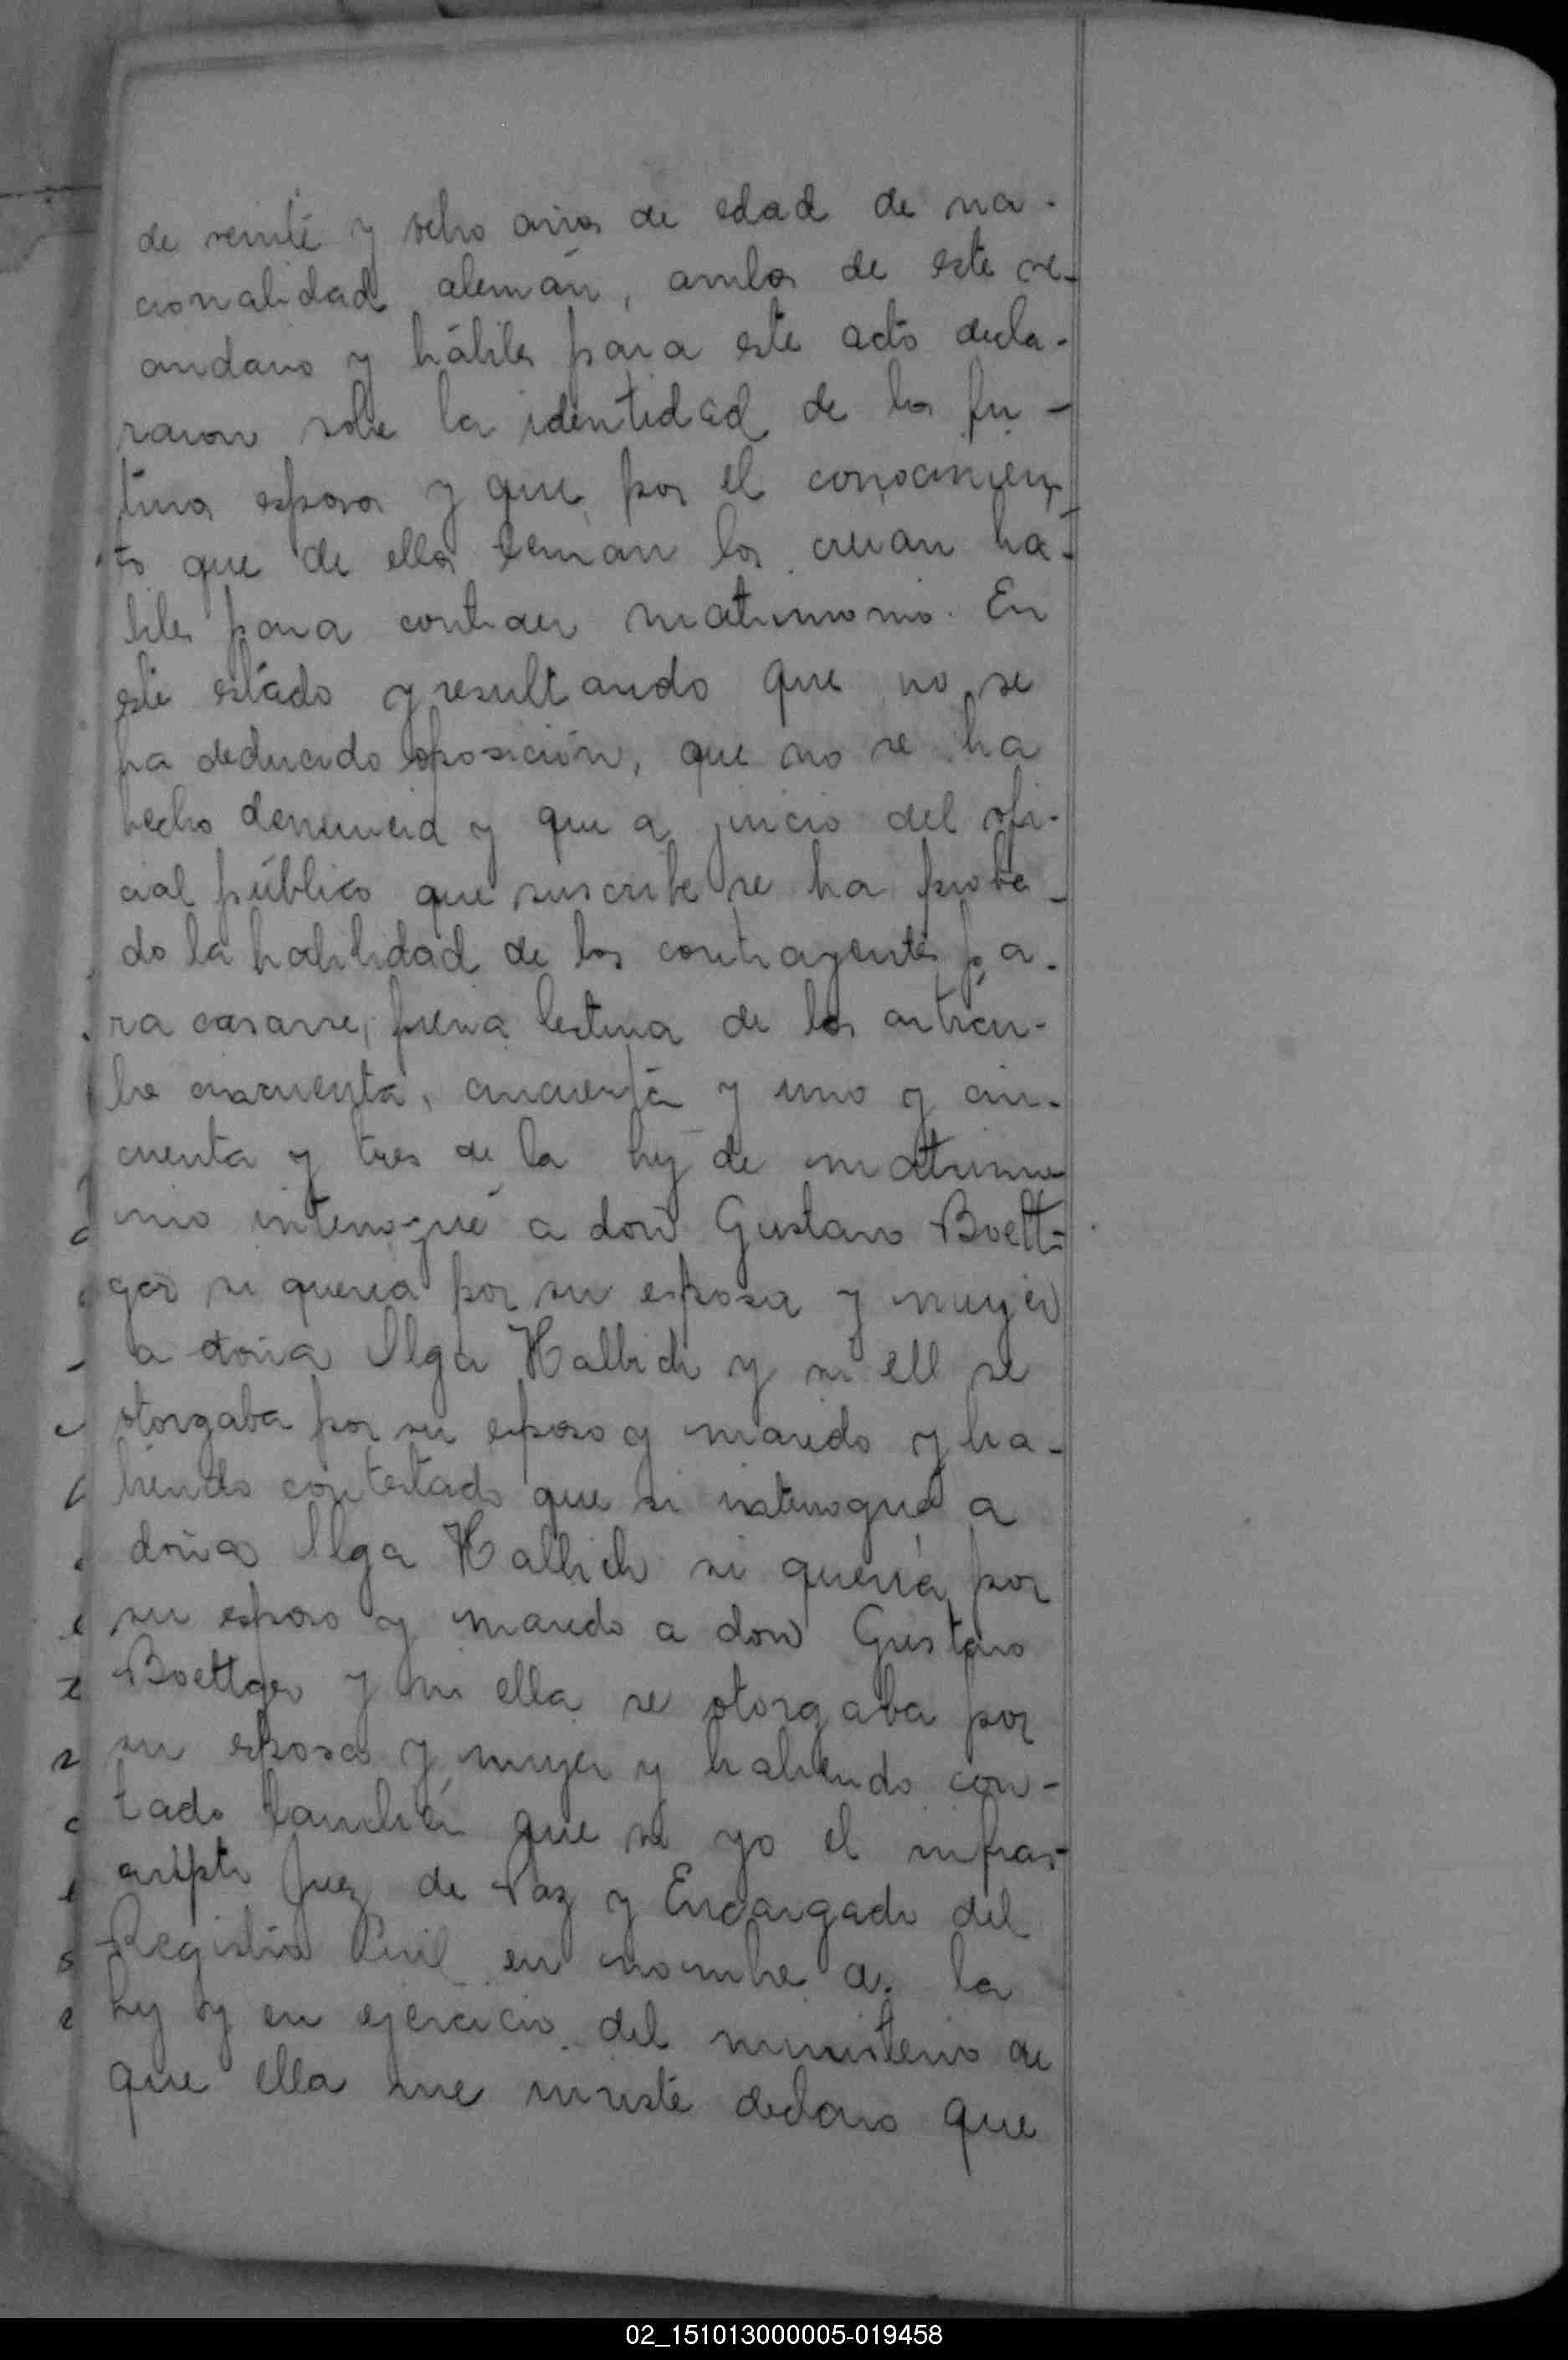 de veinte y ocho años de edad de na-
cionalidad alemán, ambos de este ve-
cindario y hábiles para este acto decla-
raron sobre la identidad de los fu-
turos esposos y que por el conocimien
to que de ellos tenían los creían há-
biles para contraer matrimonio. En
este estado y resultando que no se
ha deducido oposición, que no se ha
hecho denuncia y que a juicio del ofi-
cial público que suscribe se ha proba-
do la habilidad de los contrayentes pa-
ra casarse, previa lectura de los artícu-
los cincuenta, cincuenta y uno y cin-
cuenta y tres de la ley de matrimo-
nio interrogué a don Gustavo Boett-
ger si quería por su esposa y mujer
a doña Olga Halbich y si ell se
otorgaba por su esposo y marido y ha-
biendo contestado que si interrogué a
doña Olga Halbich si quería por
su esposo y marido a don Gustavo
Boettger y si ella se otorgaba por
su esposa y mujer y habiendo con-
tado también que si yo el infras-
cripto Juez de Paz y Encargado del
Registro Civil en nombre a. la
ley y en ejercicio del ministerio de
que ella me inviste declaro que
02_151013000005-019458